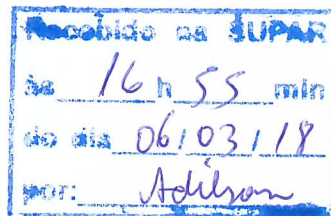 Recebido na SUPAR
às 16 h 55 min
do dia 06/03/18
por: Adilson